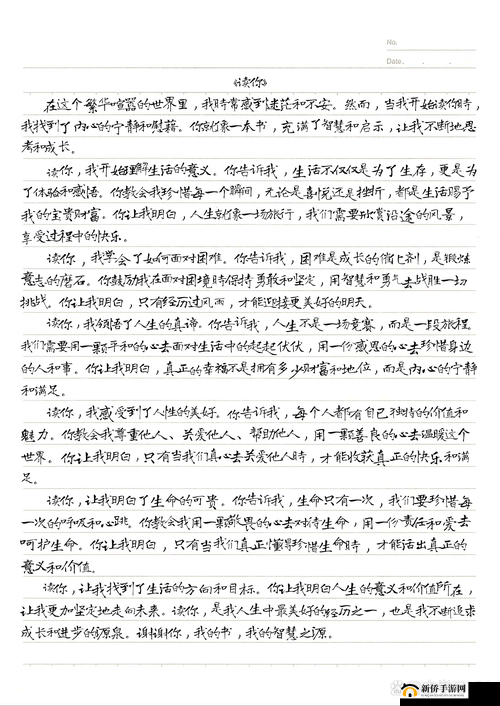 No.
Date.
《读你》
在这个繁华喧嚣的世界里，我时常感到迷茫和不安。然而，当我开始读你时，
我找到了内心的宁静和慰藉。你就像一本书，充满了智慧和启示，让我不断地思
考和成长。
读你，我开始理解生活的意义。你告诉我，生活不仅仅是为了生存，更是为
了体验和感悟。你教会我珍惜每一个瞬间，无论是喜悦还是挫折，都是生活赐予
我的宝贵财富。你让我明白，人生就像一场旅行，我们需要欣赏沿途的风景，
享受过程中的快乐。
读你，我学会了如何面对困难。你告诉我，困难是成长的催化剂，是锻炼
意志的磨石。你鼓励我在面对困境时保持勇敢和坚定，用智慧和勇气去战胜一切
挑战。你让我明白，只有经历过风雨，才能迎接更美好的明天。
读你，我领悟了人生的真谛。你告诉我，人生不是一场竞赛，而是一段旅程。
我们需要用一颗平和的心去面对生活中的起起伏伏，用一份感恩的心去珍惜身边
的人和事。你让我明白，真正的幸福不是拥有多少财富和地位，而是内心的宁静
和满足。
读你，我感受到了人性的美好。你告诉我，每个人都有自己独特的价值和
魅力。你教会我尊重他人、关爱他人、帮助他人，用一颗善良的心去温暖这个
世界。你让我明白，只有当我们真心去关爱他人时，才能收获真正的快乐和满
足。
读你，让我明白了生命的可贵。你告诉我，生命只有一次，我们要珍惜每
一次的呼吸和心跳。你教会我用一颗敬畏的心去对待生命，用一份责任和爱去
呵护生命。你让我明白，只有当我们真正懂得珍惜生命时，才能活出真正的
意义和价值。
读你，让我找到了生活的方向和目标。你让我明白人生的意义和价值所在，
让我更加坚定地走向未来。读你，是我人生中最美好的经历之一，也是我不断追求
成长和进步的源泉。谢谢你，我的书，我的智慧之源。
新侨手游网